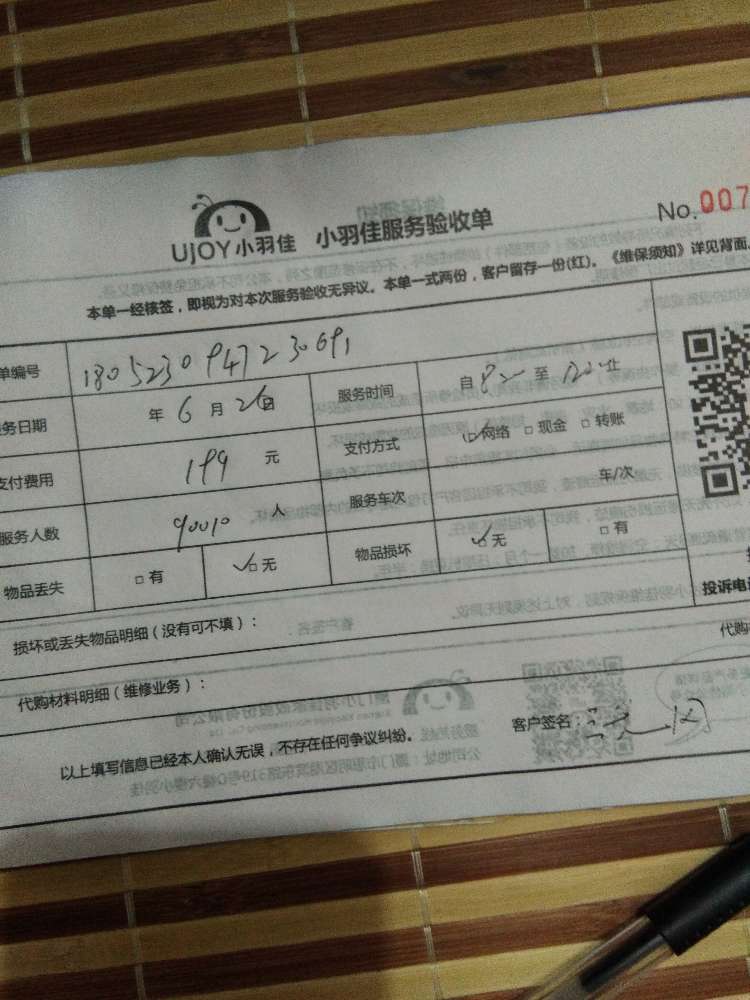 UJOY小羽佳 小羽佳服务验收单 No.007
本单一经核签，即视为对本次服务验收无异议。本单一式两份，客户留存一份(红)。《维保须知》详见背面。
单编号 1805230947230691
务日期 年 6 月 26 日 服务时间 自 8 至 12 止
支付费用 199 元 支付方式 ✓□网络 □现金 □转账
服务人数 90010 人 服务车次 车/次
物品丢失 □有 ✓□无 物品损坏 ✓□无 □有
投诉电
损坏或丢失物品明细（没有可不填）：
代购材料明细（维修业务）： 代购
以上填写信息已经本人确认无误，不存在任何争议纠纷。 客户签名：